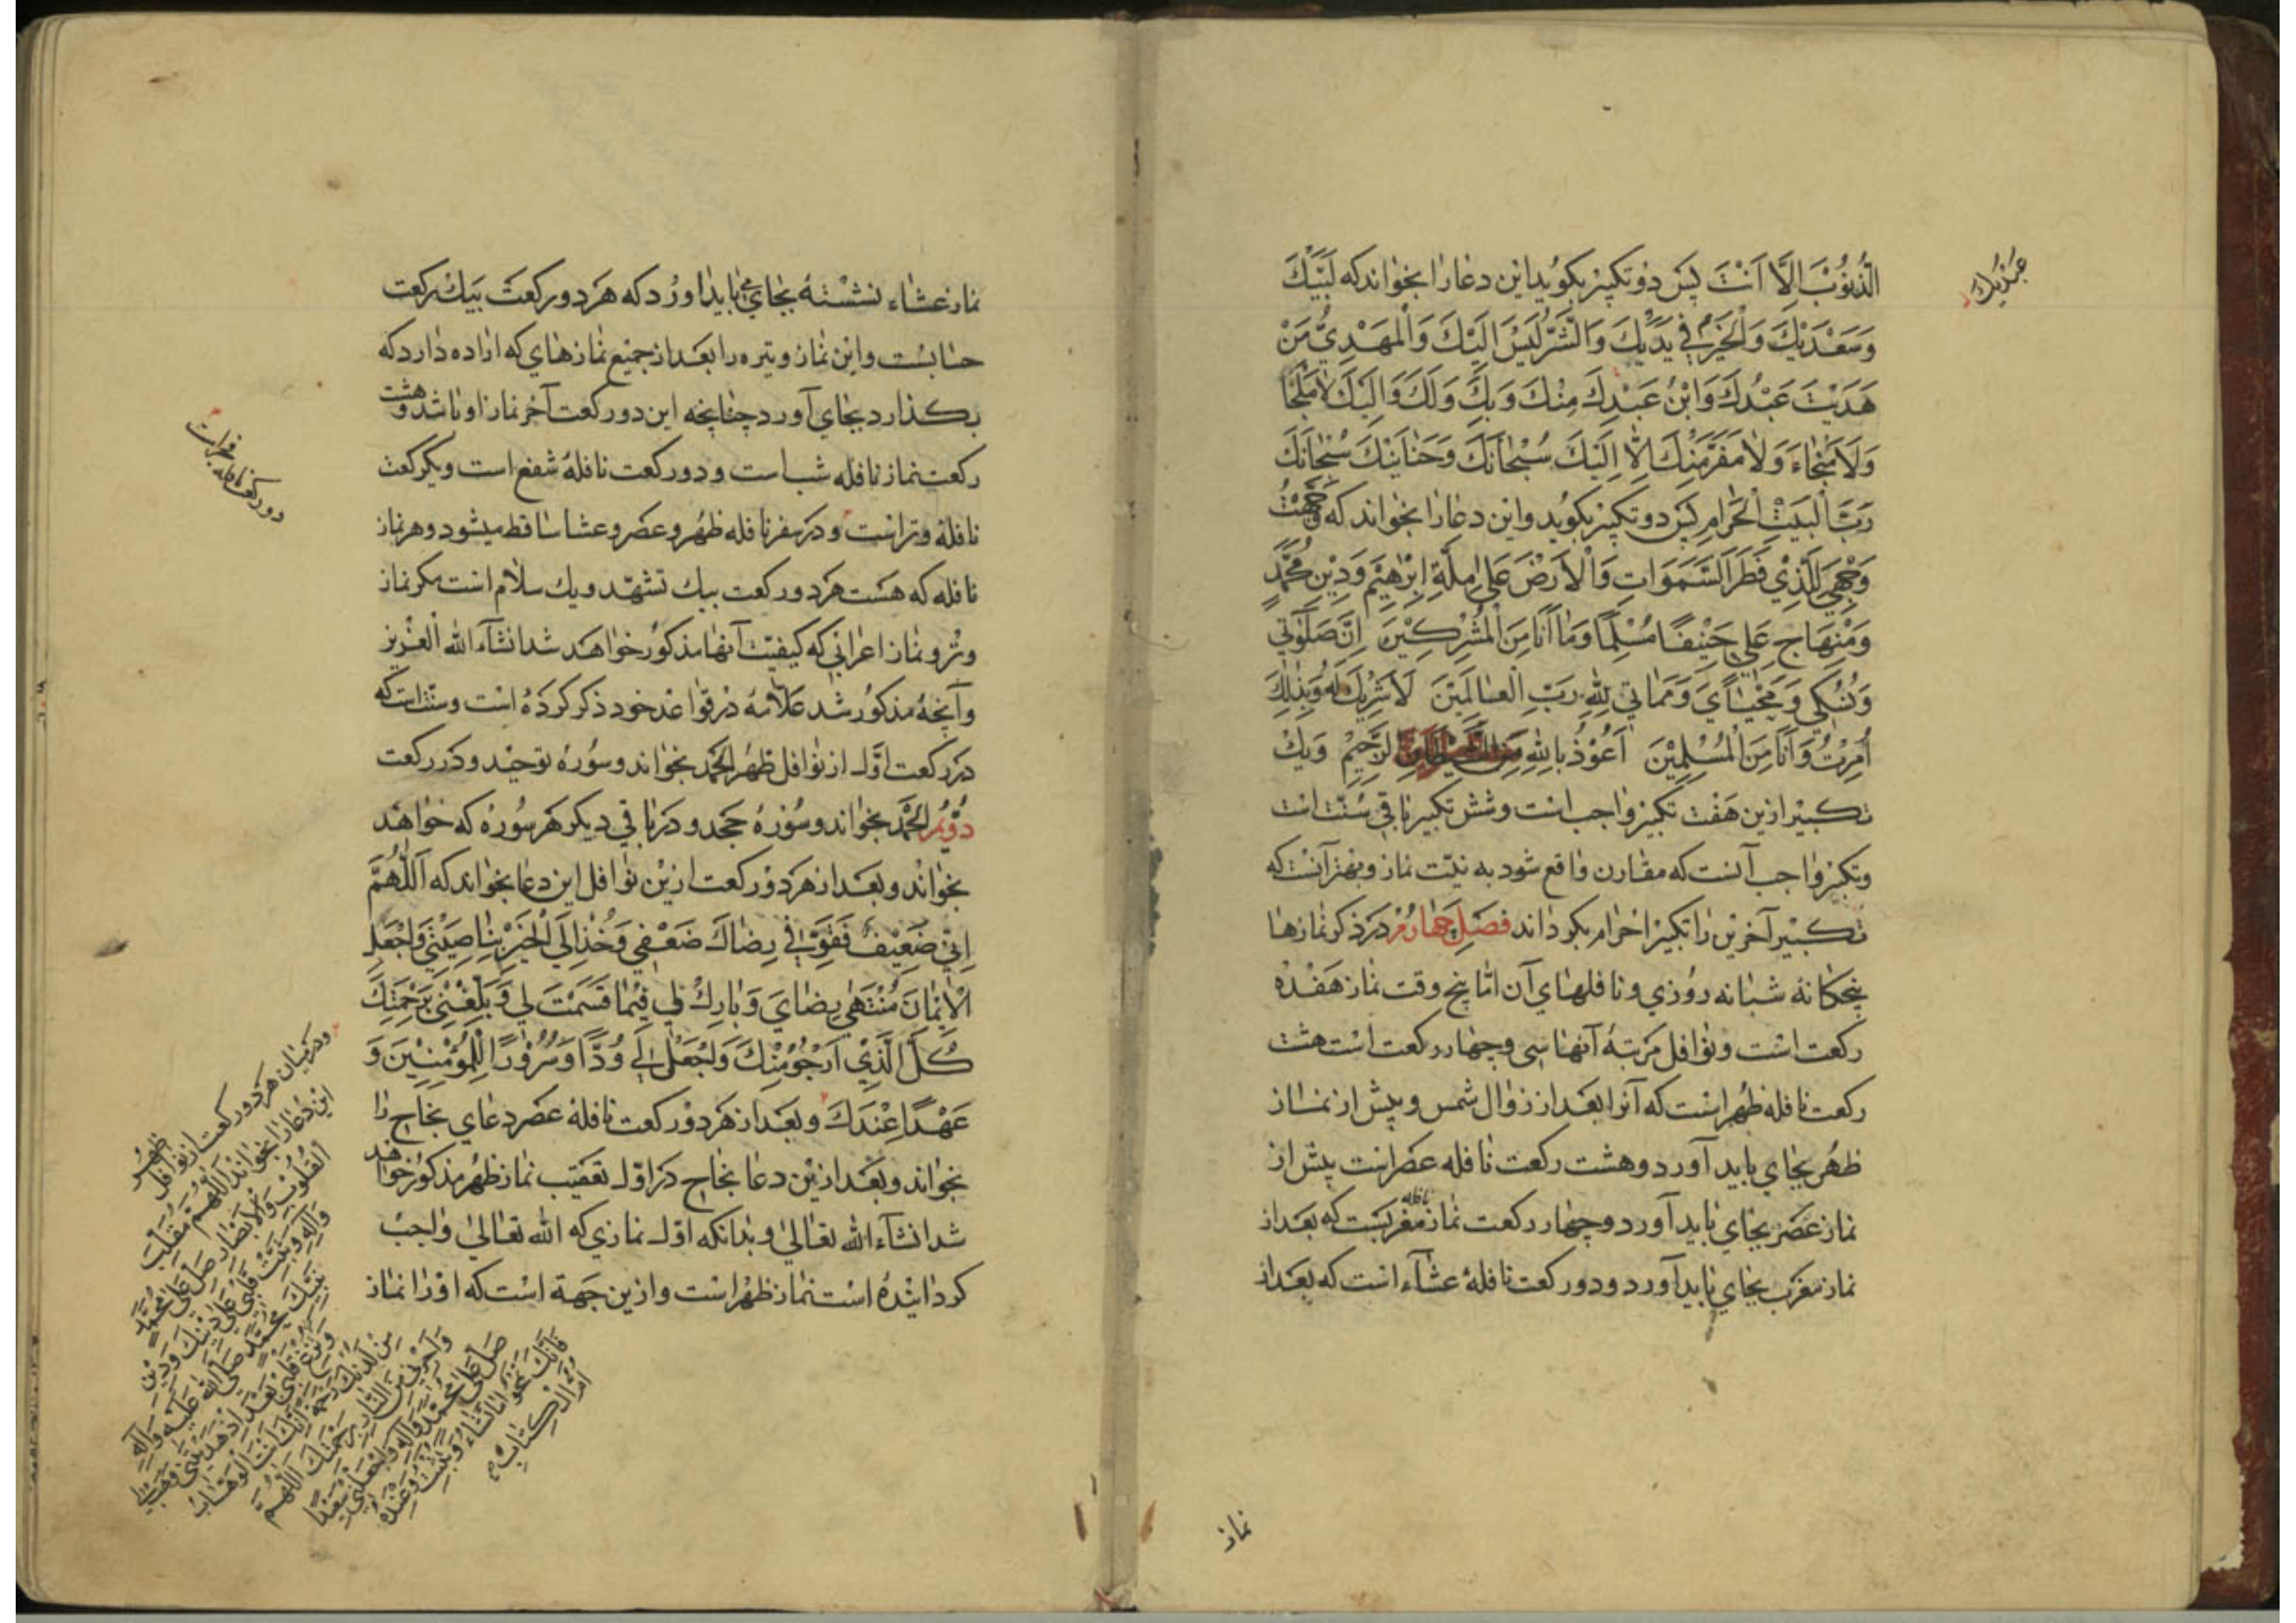 الذُّنُوْبَ اِلَّا اَنْتَ پس دو تکبیر بکوید این دعا را بخواند که لَبَّیْكَ
وَسَعْدَیْكَ وَالْخَیْرُ فِي یَدَیْكَ وَالشَّرُّ لَیْسَ اِلَیْكَ وَالْمَهْدِيُّ مَنْ
هَدَیْتَ عَبْدُكَ وَابْنُ عَبْدِكَ مِنْكَ وَبِكَ وَلَكَ وَاِلَیْكَ لَا مَلْجَأَ
وَلَا مَنْجَاءَ وَلَا مَفَرَّ مِنْكَ اِلَّا اِلَیْكَ سُبْحَانَكَ وَحَنَانَیْكَ سُبْحَانَكَ
رَبَّ الْبَیْتِ الْحَرَامِ پس دو تکبیر بکوید و این دعا را بخواند که وَجَّهْتُ
وَجْهِيَ لِلَّذِيْ فَطَرَ السَّمَوَاتِ وَالْاَرْضَ عَلَی مِلَّةِ اِبْرَاهِیْمَ وَدِیْنِ مُحَمَّدٍ
وَمِنْهَاجِ عَلِيٍّ حَنِیْفًا مُسْلِمًا وَمَا اَنَا مِنَ الْمُشْرِکِیْنَ اِنَّ صَلَوٰتِي
وَنُسُکِي وَمَحْیَايَ وَمَمَاتِي لِلّٰهِ رَبِّ الْعَالَمِیْنَ لَا شَرِیْكَ لَهُ وَبِذٰلِكَ
اُمِرْتُ وَاَنَا مِنَ الْمُسْلِمِیْنَ اَعُوْذُ بِاللّٰهِ مِنَ الشَّیْطَانِ الرَّجِیْمِ و یك
تکبیر ازین هفت تکبیر واجب است و شش تکبیر باقی سنت است
و تکبیر واجب آنست که مقارن واقع شود به نیت نماز و بهتر آنست که
تکبیر آخرین را تکبیر احرام بکرداند فصل چهارم در ذکر نمازها
پنجکانه شبانه روزي و نافلهاي آن اما پنج وقت نماز هفده
رکعت است و نوافل مرتبهٔ آنها سی و چهار رکعت است هشت
رکعت نافله ظهر است که آنرا بعد از زوال شمس و پیش از نماز
ظهر بجاي باید آورد و هشت رکعت نافله عصر است پیش از
نماز عصر بجاي باید آورد و چهار رکعت نماز نافله مغربست که بعد از
نماز مغرب بجاي باید آورد و دو رکعت نافلهٔ عشآء است که بعد از
نماز
نماز عشاء نشسته بجاي می باید آورد که هر دو رکعت بیك رکعت
حسابست و این نماز وتیره را بعد از جمیع نمازهاي که اراده دارد که
بکذارد بجاي آورد چنانچه این دو رکعت آخر نماز او باشد و هشت
رکعت نماز نافله شب است و دو رکعت نافلهٔ شفع است و یکرکعت
نافلهٔ وتر است و در سفر نافله ظهر و عصر و عشا ساقط میشود و هر نماز
نافله که هست هر دو رکعت بیك تشهد و یك سلام است مکر نماز
وتر و نماز اعرابي که کیفیت آنها مذکور خواهد شد انشآء الله العزیز
و آنچه مذکور شد علامه در قواعد خود ذکر کرده است و سنت است که
در رکعت اول از نوافل ظهر الحمد بخواند و سوره توحید و در رکعت
دوم الحمد بخواند و سوره جحد و در باقي دیکر هر سوره که خواهد
بخواند و بعد از هر دو رکعت ازین نوافل این دعا بخواند که اَللّٰهُمَّ
اِنِّي ضَعِیْفٌ فَقَوِّ فِي رِضَاكَ ضَعْفِي وَخُذْ اِلَی الْخَیْرِ بِنَاصِیَتِيْ وَاجْعَلِ
الْاِیْمَانَ مُنْتَهَی رِضَايَ وَبَارِكْ لِي فِیْمَا قَسَمْتَ لِي وَبَلِّغْنِيْ بِرَحْمَتِكَ
کُلَّ الَّذِيْ اَرْجُوْ مِنْكَ وَاجْعَلْ لِي وُدًّا وَسُرُوْرًا لِلْمُؤْمِنِیْنَ وَ
عَهْدًا عِنْدَكَ و بعد از هر دو رکعت نافلهٔ عصر دعاي نجاح را
بخواند و بعد ازین دعا نجاح در اول تعقیب نماز ظهر مذکور خواهد
شد انشآء الله تعالی و بدانکه اول نمازي که الله تعالی واجب
کردانیده است نماز ظهر است و ازین جهة است که او را نماز
ودر میان هر دو رکعت از نوافل ظهر
این دعا را بخواند اَللّٰهُمَّ مُقَلِّبَ
الْقُلُوْبِ وَالْاَبْصَارِ صَلِّ عَلَی مُحَمَّدٍ
وَآلِهِ وَثَبِّتْ قَلْبِيْ عَلَی دِیْنِكَ وَدِیْنِ
نَبِیِّكَ مُحَمَّدٍ صَلَّی اللّٰهُ عَلَیْهِ وَآلِهِ
وَلَا تُزِغْ قَلْبِيْ بَعْدَ اِذْ هَدَیْتَنِيْ وَهَبْ لِي
مِنْ لَدُنْكَ رَحْمَةً اِنَّكَ اَنْتَ الْوَهَّابُ
وَاَجِرْنِي مِنَ النَّارِ بِرَحْمَتِكَ اَللّٰهُمَّ
صَلِّ عَلَی مُحَمَّدٍ وَآلِهِ وَاجْعَلْنِيْ سَعِیْدًا
فَاِنَّكَ تَمْحُوْ مَا تَشَاءُ وَتُثْبِتُ وَعِنْدَهُ
اُمُّ الْکِتَابِ